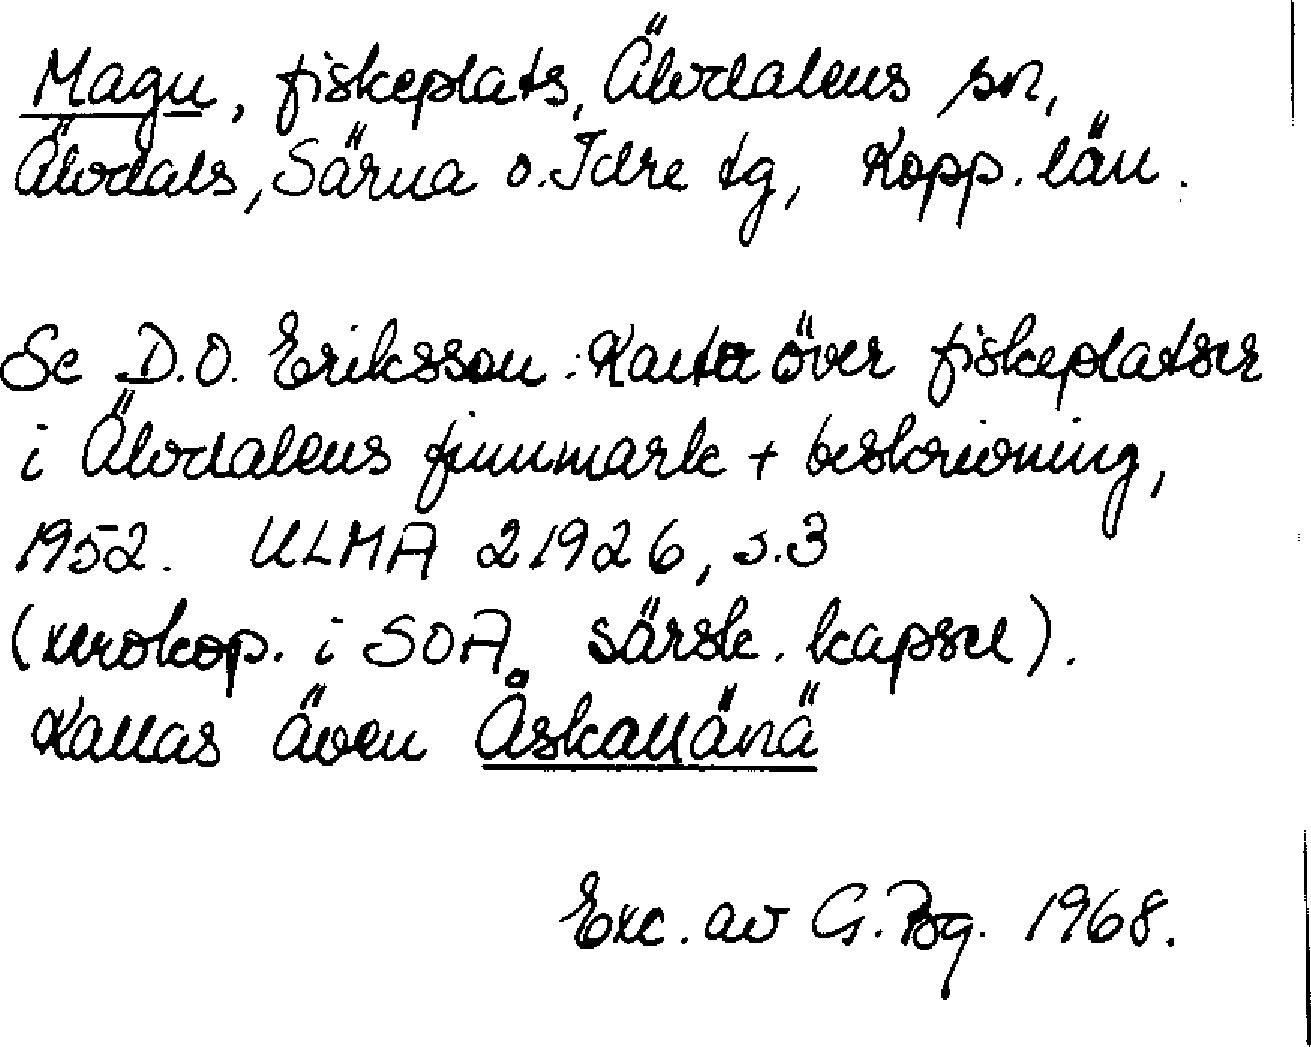 Magu, fiskeplats, Älvdalens sn,
Älvdals, Särna o. Idre tg, Kopp. län.
Se D.O. Eriksson: Karta över fiskeplatser
i Älvdalens finnmark + beskrivning,
1952. ULMA 21926, s.3
(xerokop. i SOA, särsk. kapsel).
Kallas även Åskallänä
Exc. av G. Bg. 1968.